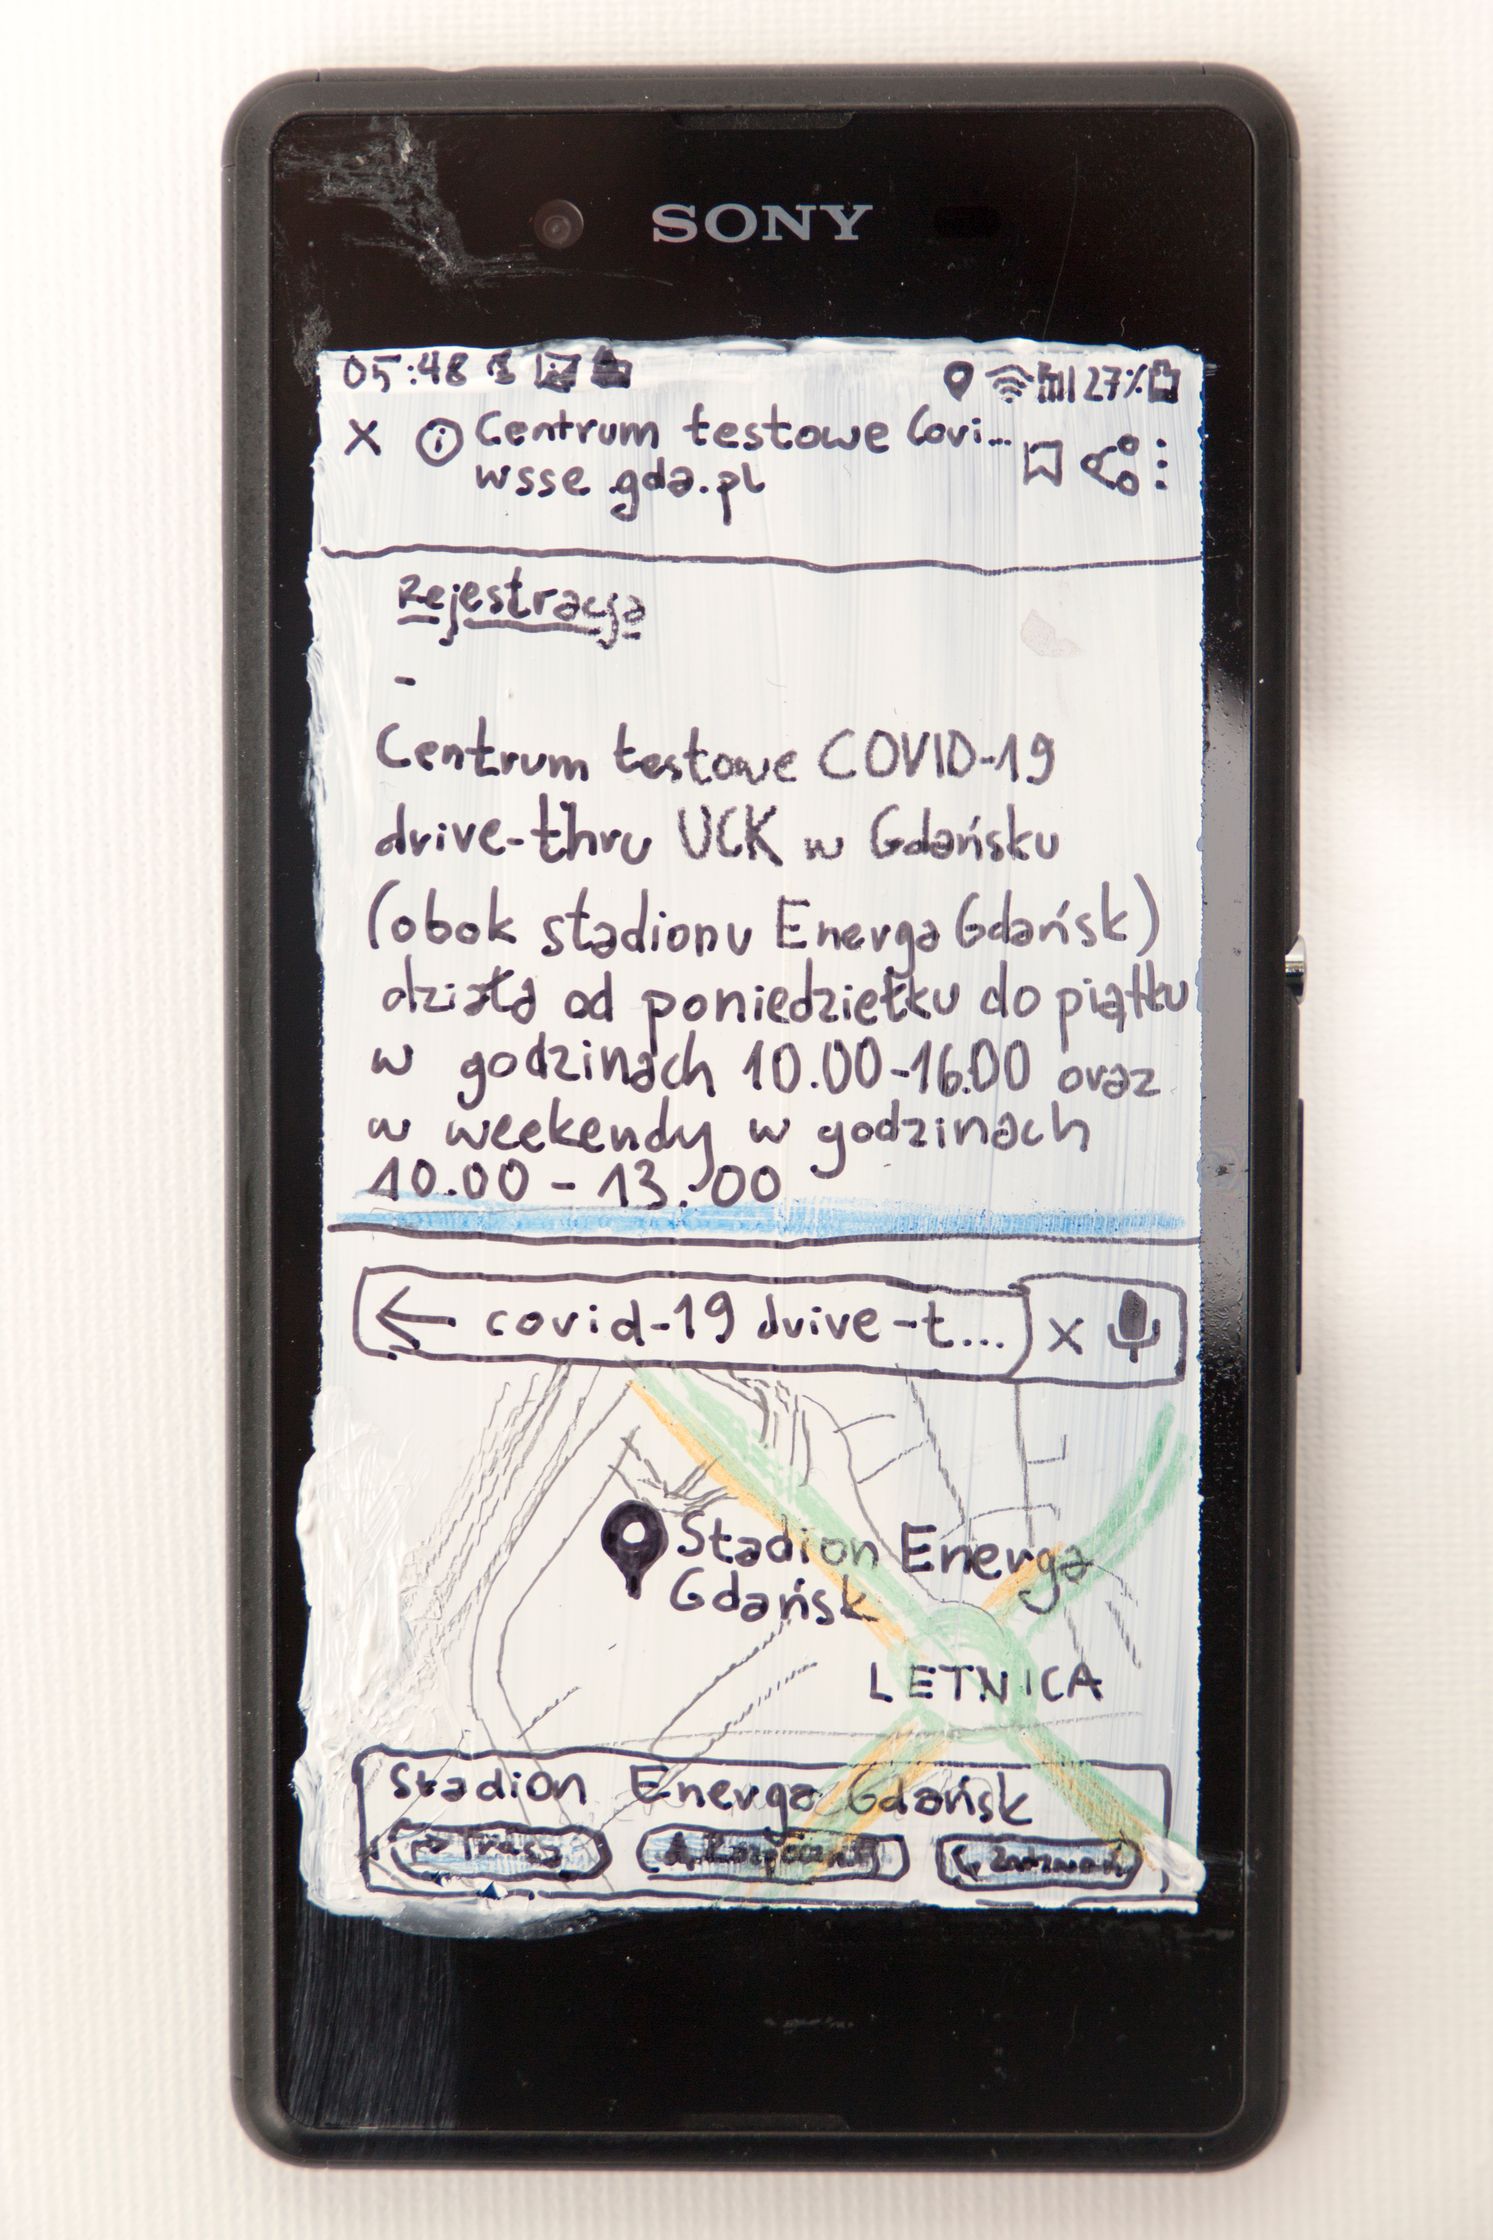 SONY
05:48 27%
X Centrum testowe Covi...
wsse.gda.pl
Rejestracja
-
Centrum testowe COVID-19
drive-thru UCK w Gdańsku
(obok stadionu Energa Gdańsk)
działa od poniedziełku do piątku
w godzinach 10.00-16.00 oraz
w weekendy w godzinach
10.00 - 13.00
covid-19 drive-t... x
Stadion Energa
Gdańsk
LETNICA
Stadion Energa Gdańsk
Trasa